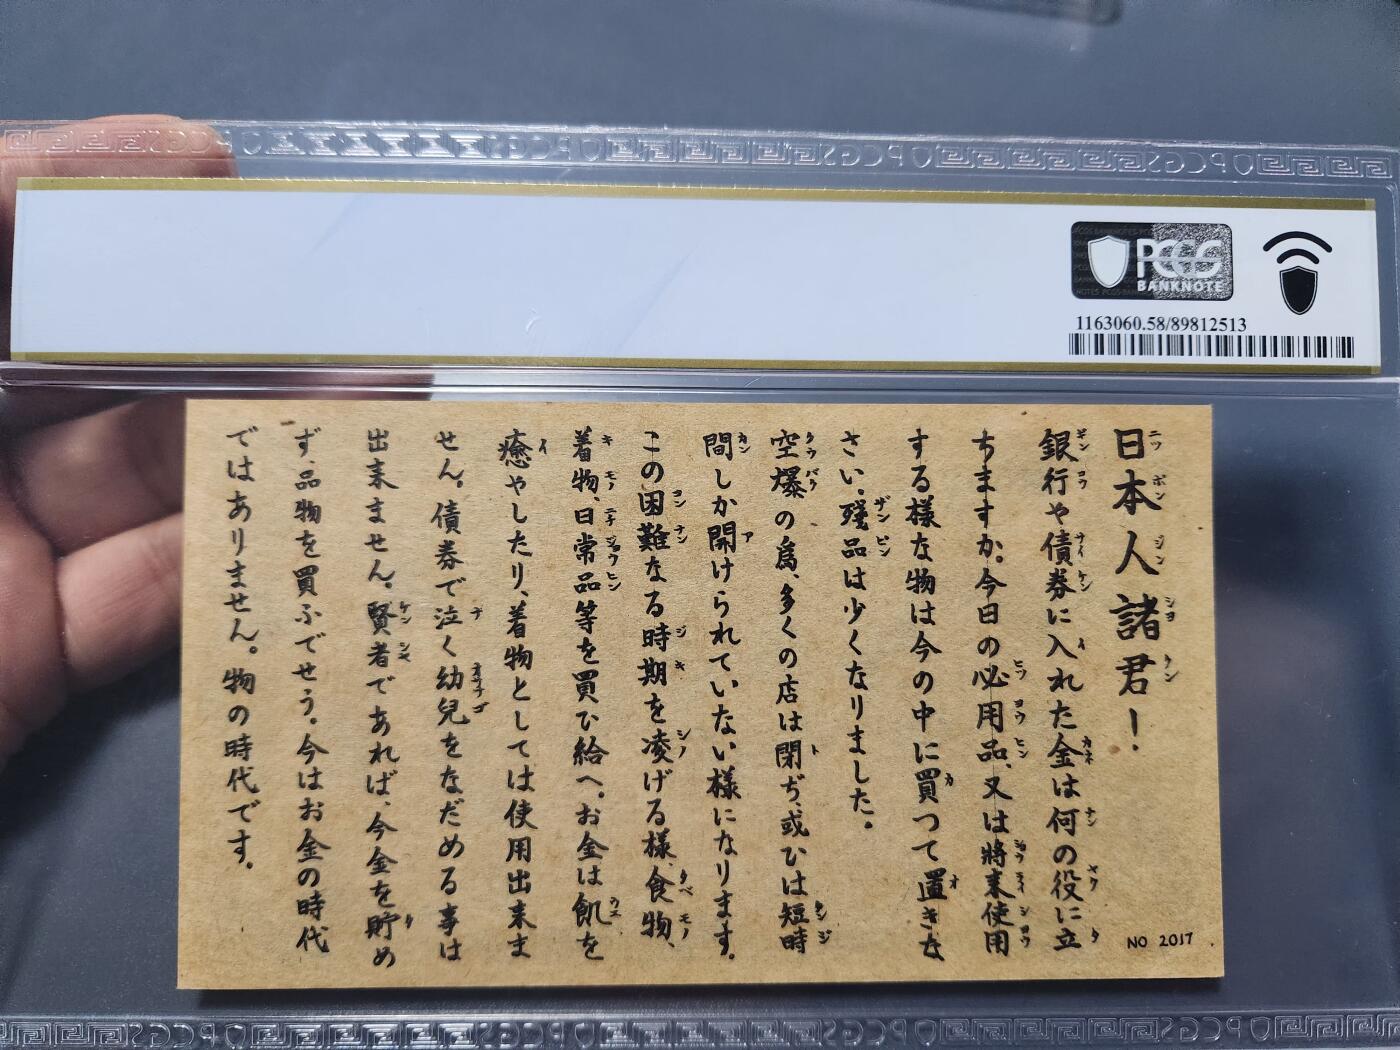 PCGS
BANKNOTE
1163060.58/89812513
日本人諸君!
銀行や債券に入れた金は何の役に立
ちますか。今日の必用品、又は將来使用
する様な物は今の中に買つて置きな
さい。殘品は少くなりました。
空爆の爲、多くの店は閉ぢ、或ひは短時
間しか開けられていない様になります。
この困難なる時期を凌げる様、食物、
着物、日常品等を買ひ給へ。お金は飢を
癒やしたり、着物としては使用出来ま
せん。債券で泣く幼兒をなだめる事は
出来ません。賢者であれば、今金を貯め
ず、品物を買ふでせう。今はお金の時代
ではありません。物の時代です。
NO 2017